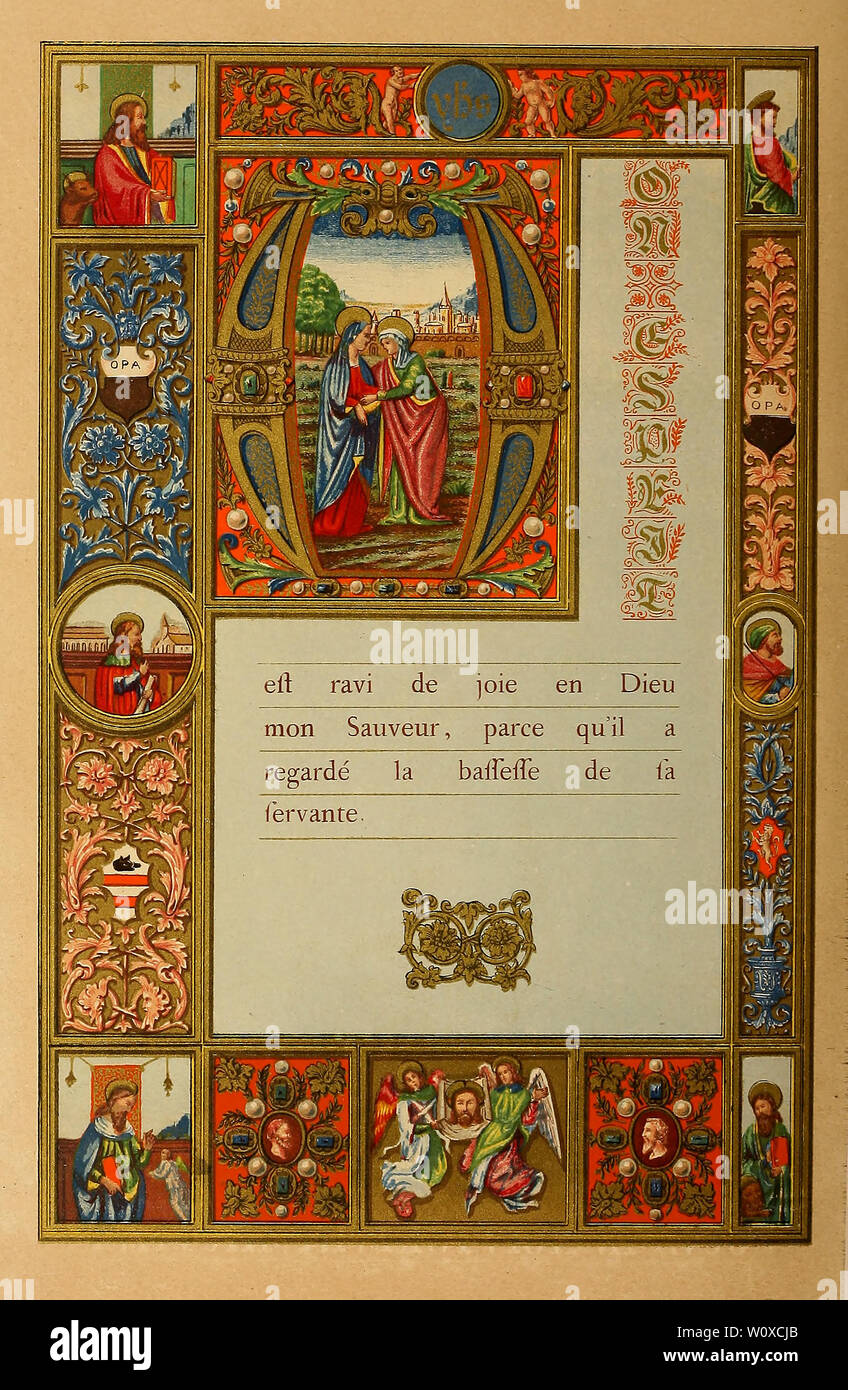 yhs
MON ESPRIT
OPA
OPA
eſt ravi de joie en Dieu
mon Sauveur, parce qu'il a
regardé la baſſeſſe de ſa
ſervante.
alamy
alamy
Image ID: W0XCJB
www.alamy.com